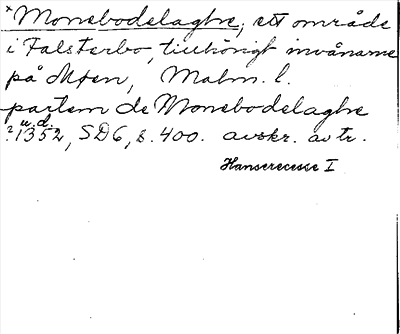 ×Monebodelaghe, ett område
i Falsterbo, tillhörigt invånarne
på Möen, Malm. l.
partem de Monebodelaghe
u.d.
?1352, SD6, s. 400. avskr. av tr.
Hanserecesse I